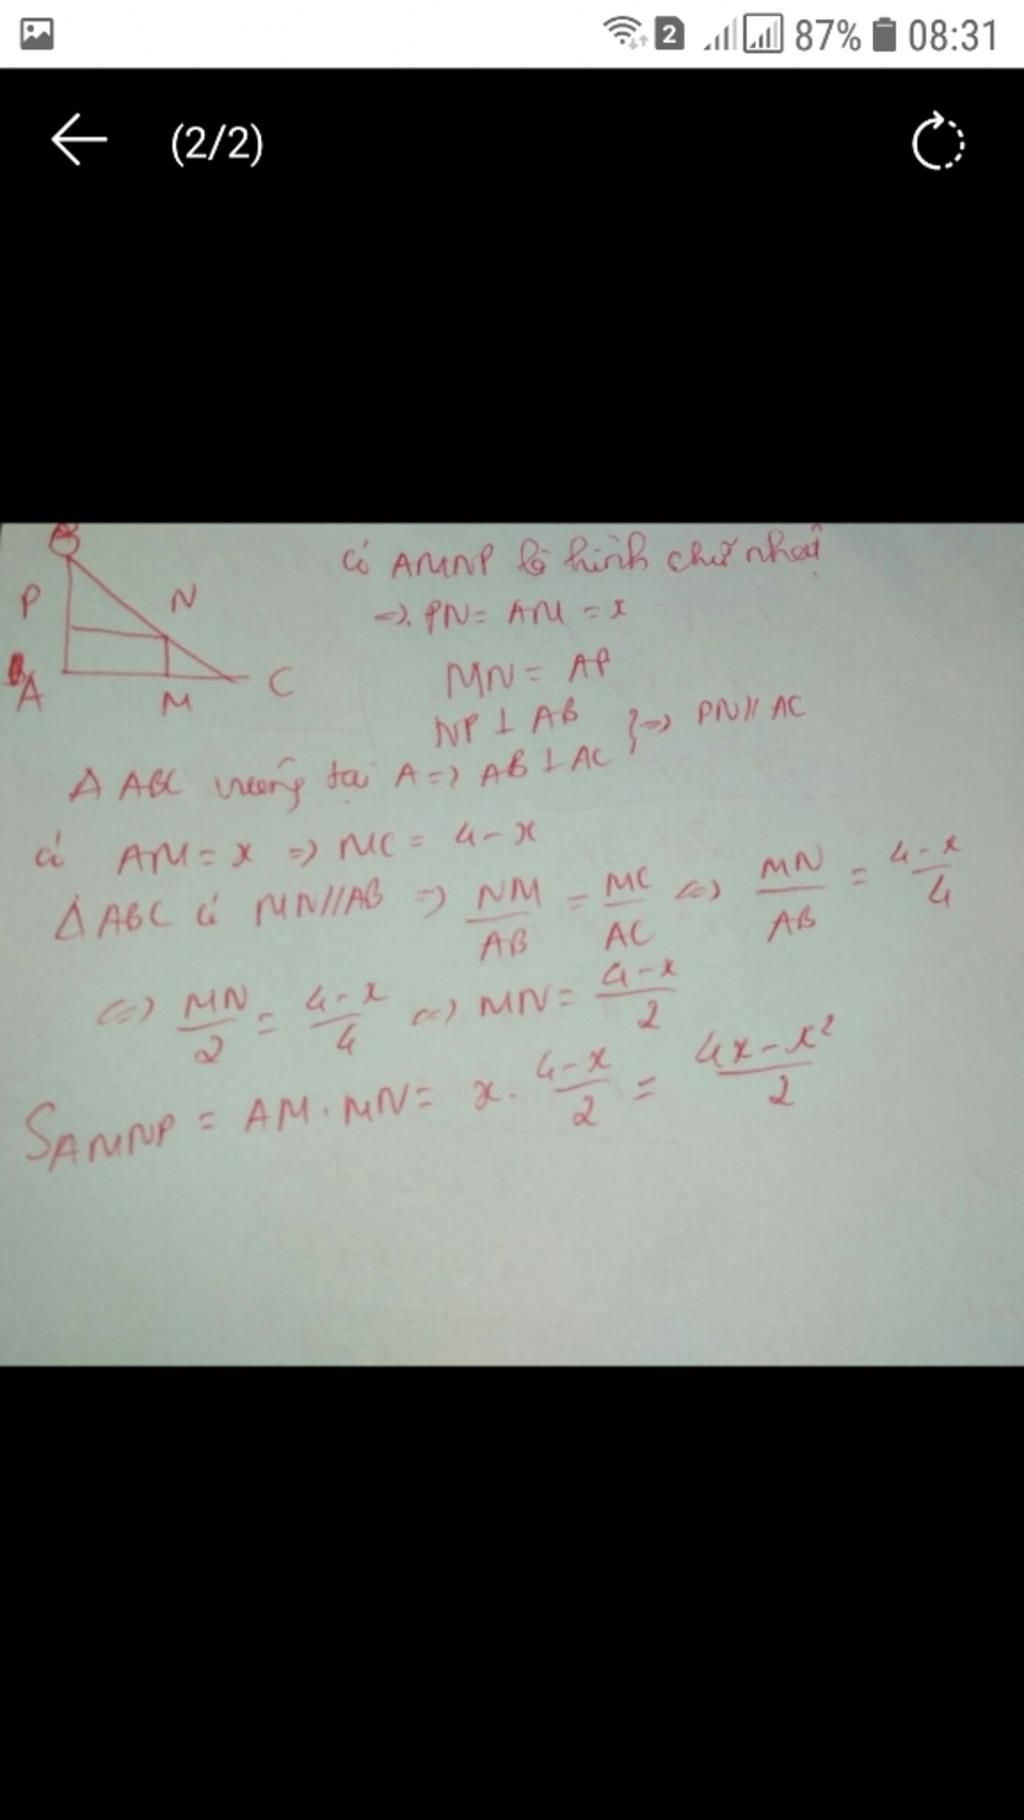 2 87% 08:31
(2/2)
B
P
N
A
M
C
Có AMNP là hình chữ nhật
=> PN = AM = x
MN = AP
NP ⊥ AB
} => PN // AC
Δ ABC vuông tại A => AB ⊥ AC
Có AM = x => MC = 4-x
Δ ABC có MN//AB => NM/AB = MC/AC <=> MN/AB = 4-x/4
<=> MN/2 = 4-x/4 <=> MN = 4-x/2
SAMNP = AM . MN = x. 4-x/2 = 4x-x²/2